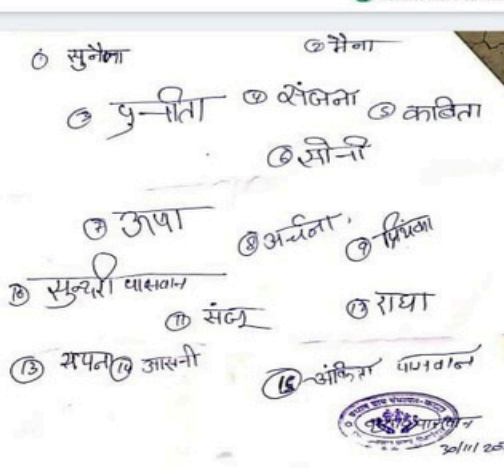 ① सुनैना ② मैना
③ पुनीता ④ संजना ⑤ कबिता
⑥ सोनी
⑦ ऊषा ⑧ अर्चना ⑨ प्रियंका
10 सुन्दरी पासवान
⑪ संजू 12 राधा
⑬ सपना ⑭ आसनी
15 अंकिता पासवान
30/11/20